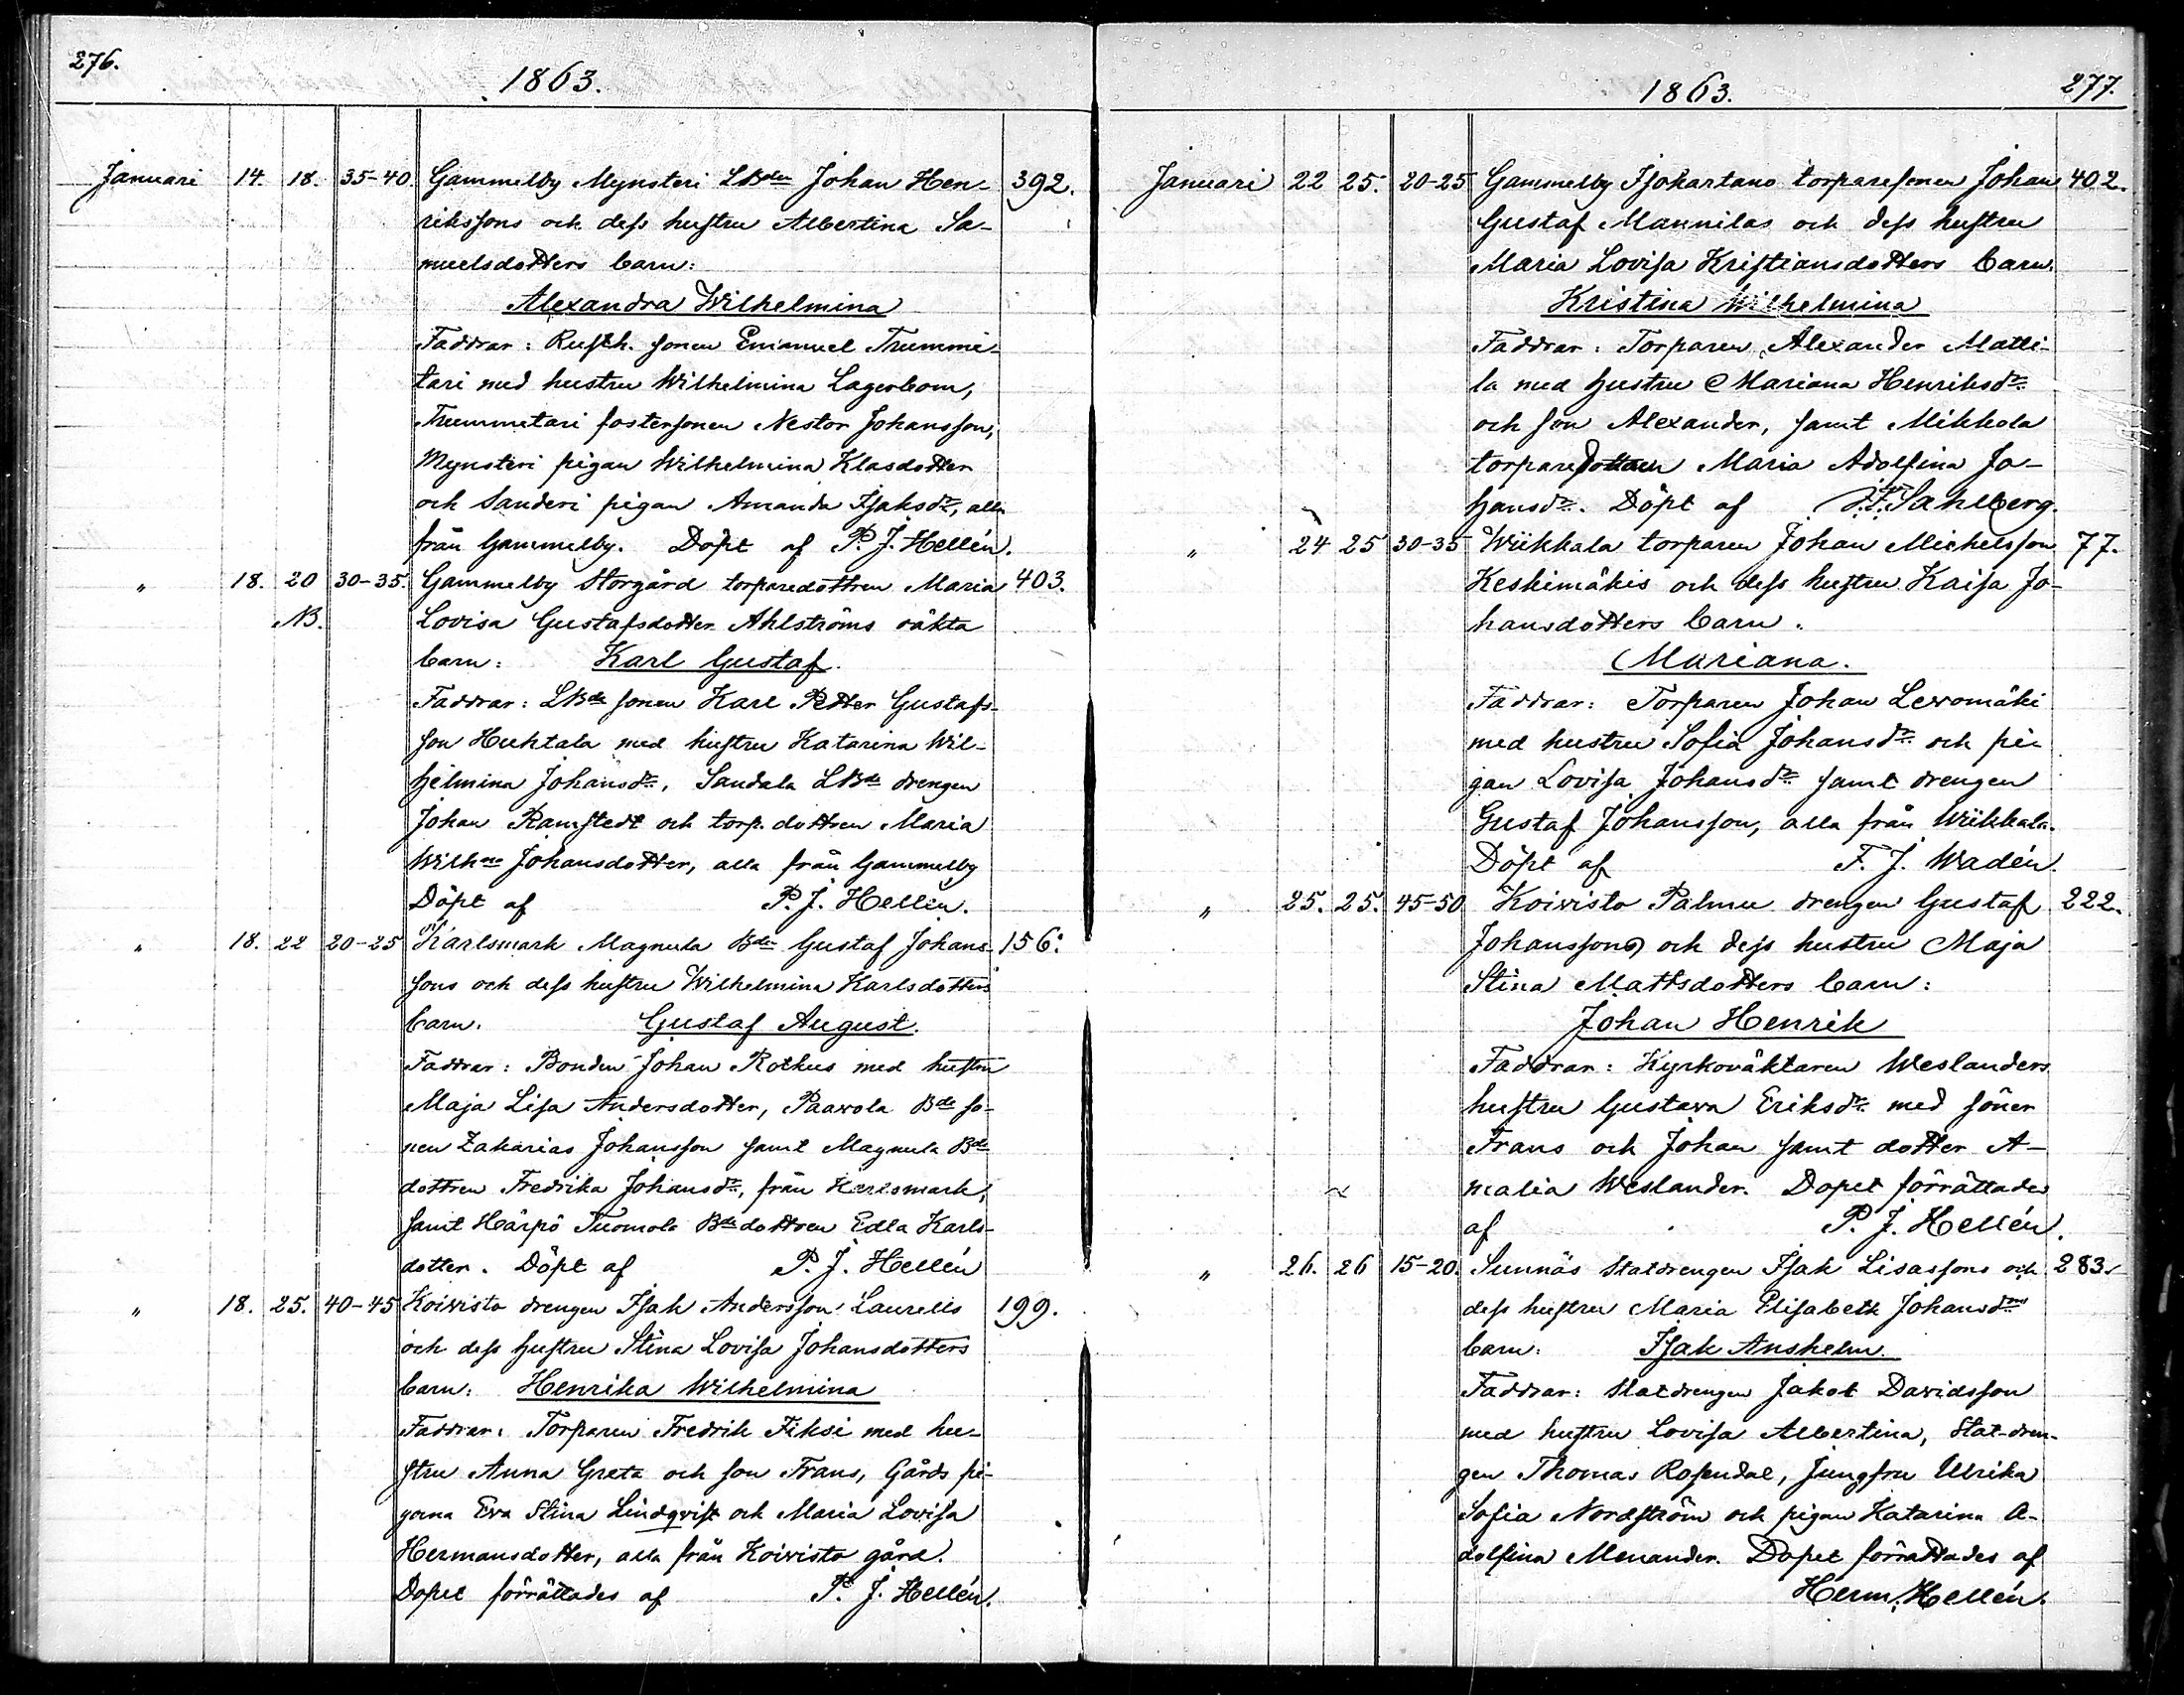 276.
1863.
Januari 14. 18. 35-40. Gammelby Mynsteri LBden Johan Hen- 392.
rikssons och dess hustru Albertina Sa-
muelsdotters barn:
Alexandra Wilhelmina
Faddrar: Rusth. sonen Emanuel Trummi-
tari med hustru Wilhelmina Lagerbom,
Trummetari fostersonen Nestor Johansson,
Mynsteri pigan Wilhelmina Klasdotter
och Sanderi pigan Amanda Isaksdr, alla
från Gammelby. Döpt af P. J. Hellén.
" 18. 20 30-35. Gammelby Storgård torparedottren Maria 403.
NB. Lovisa Gustafsdotter Ahlströms oäkta
barn: Karl Gustaf.
Faddrar: LBde sonen Karl Petter Gustafs-
son Huhtala med hustru Katarina Wil-
hjelmina Johansdr, Sandala LBde drengen
Johan Ramstedt och torp. dottren Maria
Wilhna Johansdotter, alla från Gammelby
Döpt af P. J. Hellén.
" 18. 22 20-25 Karlsmark Magnula Bden Gustaf Johans- 156.
sons och dess hustru Wilhelmina Karlsdotters
barn. Gustaf August.
Faddrar: Bonden Johan Rotkus med hustru
Maja Lisa Andersdotter, Paavola Bde so-
nen Zakarias Johansson samt Magnula Bde
dottren Fredrika Johansdr, från Karlsmark,
samt Härpö Tuomola Bde dottren Edla Karls-
dotter. Döpt af P. J. Hellén
" 18. 25. 40-45 Koivisto drengen Isak Andersson Laurells 199.
och dess hustru Stina Lovisa Johansdotters
barn: Henrika Wilhelmina
Faddrar: Torparen Fredrik Fiksi med hu-
stru Anna Greta och son Frans, Gårds pi-
gorna Eva Stina Lindqvist och Maria Lovisa
Hermansdotter, alla från Koivisto gård.
Dopet förrättades af P. J. Hellén.
1863.
277.
Januari 22 25. 20-25 Gammelby Isokartano torparesonen Johan 402.
Gustaf Mannilas och dess hustru
Maria Lovisa Kristiansdotters barn.
Kristina Wilhelmina
Faddrar: Torparen Alexander Matti-
la med hustru Mariana Henriksdr
och son Alexander, samt Mikkola
torparedottren Maria Adolfina Jo-
hansdr. Döpt af Sahlberg.
" 24 25 30-35 Wiikkala torparen Johan Michelsson 77.
Keskimäkis och dess hustru Kaisa Jo-
hansdotters barn.
Mariana.
Faddrar: Torparen Johan Levomäki
med hustru Sofia Johansdr och pi-
gan Lovisa Johansdr samt drengen
Gustaf Johansson, alla från Wiikkala.
Döpt af F. J. Wadén.
" 25. 25. 45-50 Koivisto Palmu drengen Gustaf 222.
Johanssons och dess hustru Maja
Stina Mattsdotters barn:
Johan Henrik
Faddrar: Kyrkoväktaren Weslanders
hustru Gustava Eriksdr med söner
Frans och Johan samt dotter A-
malia Weslander. Dopet förrättades
af P. J. Hellén.
" 26. 26 15-20. Sunnäs statdrengen Isak Lisassons och 283.
dess hustru Maria Elisabeth Johansdrs
barn: Isak Anshelm.
Faddrar: Statdrengen Jakob Davidsson
med hustru Lovisa Albertina, Stat-dren-
gen Thomas Rosendal, jungfru Ulrika
Sofia Nordström och pigan Katarina A-
dolfina Menander. Dopet förrättades af
Herm. Hellén.